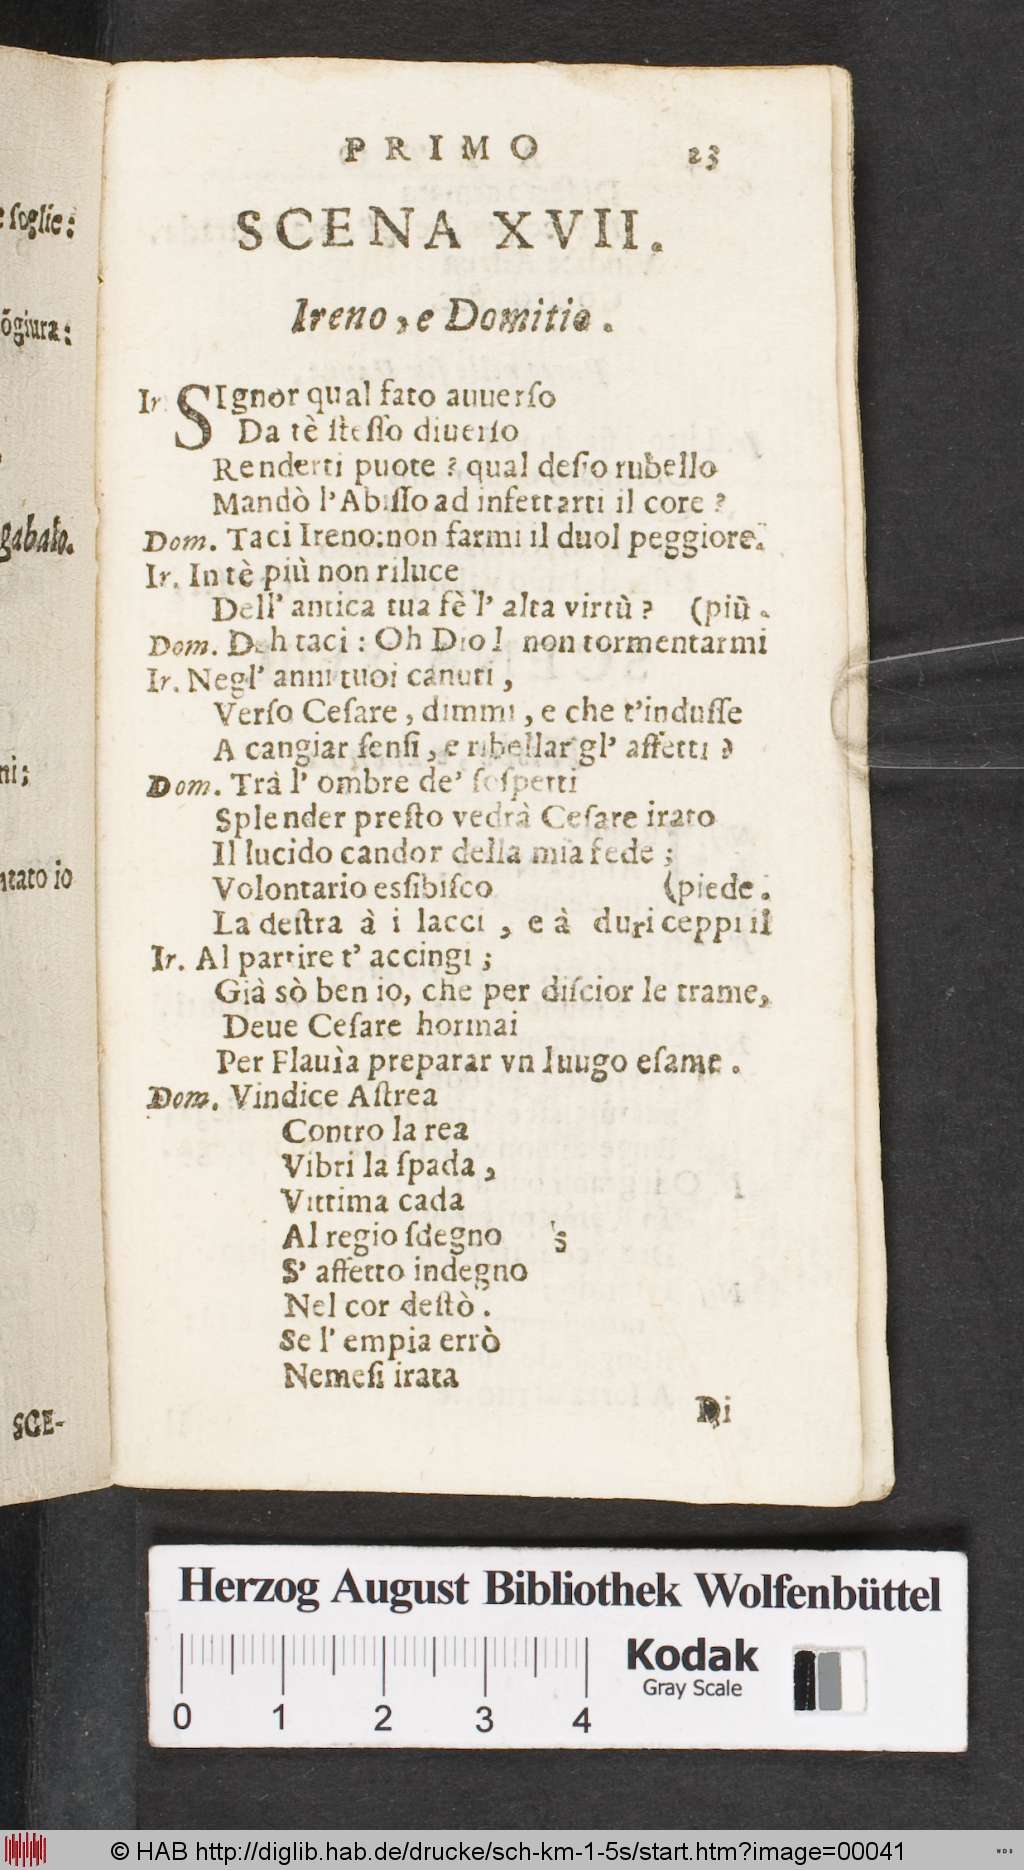 e ſoglie:
õgiura:
gabalo.
ni;
ntato io
SCE-
PRIMO 23
SCENA XVII.
Ireno, e Domitio.
Ir. SIgnor qual fato auuerſo
Da tè ſteſſo diuerſo
Renderti puote? qual deſio rubello
Mandò l'Abiſſo ad infettarti il core?
Dom. Taci Ireno: non farmi il duol peggiore.
Ir. In tè più non riluce
Dell' antica tua fè l' alta virtù? (più.
Dom. Deh taci: Oh Dio! non tormentarmi
Ir. Negl' anni tuoi canuti,
Verſo Ceſare, dimmi, e che t'induſſe
A cangiar ſenſi, e ribellar gl' affetti?
Dom. Trà l' ombre de' ſoſpetti
Splender preſto vedrà Ceſare irato
Il lucido candor della mia fede;
Volontario esſibiſco (piede.
La deſtra à i lacci, e à duri ceppi il
Ir. Al partire t' accingi;
Già sò ben io, che per diſcior le trame,
Deue Ceſare hormai
Per Flauìa preparar vn luugo eſame.
Dom. Vindice Aſtrea
Contro la rea
Vibri la ſpada,
Vittima cada
Al regio ſdegno 's
S' affetto indegno
Nel cor deſtò.
Se l' empia errò
Nemeſi irata
Di
Herzog August Bibliothek Wolfenbüttel
0 1 2 3 4
Kodak
Gray Scale
© HAB http://diglib.hab.de/drucke/sch-km-1-5s/start.htm?image=00041